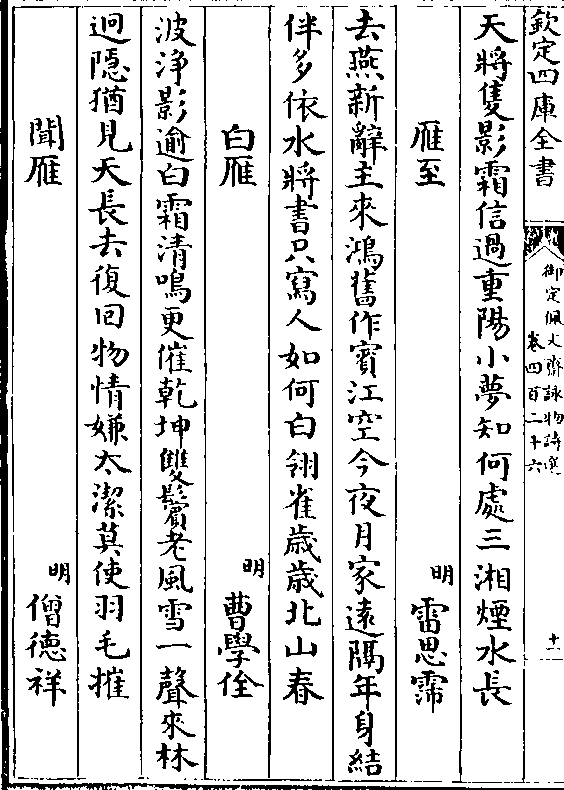 欽定四庫全書
御定佩文齋詠物詩選
卷四百二十六
十一
天將隻影霜信過重陽小夢知何處三湘煙水長
雁至
明
雷思霈
去燕新辭主來鴻舊作賓江空今夜月家遠隔年身結
伴多依水將書只寫人如何白翎雀歲歲北山春
白雁
明
曹學佺
波淨影逾白霜清鳴更催乾坤雙鬢老風雪一聲來林
迥隱猶見天長去復回物情嫌太潔莫使羽毛摧
聞雁
明
僧德祥